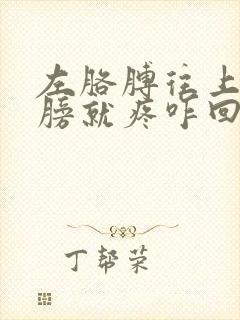 左胳膊往上
膀就疼咋回
丁帮荣